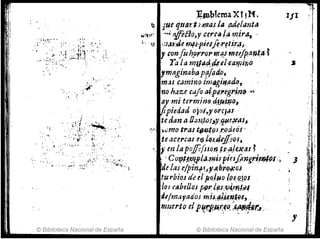 Emblema XIII.
151
que quanto mas la adelanta
affecto, y cerca la mira,
mas de mas pies se retira,
y con su horror mas me espanta
Ya la mitad del camino
ymaginaba passado,
mas camino imaginado,
no haze caso al peregrino
ay mi termino divino,
si piedad oyes, y orejas
te dan a llantos, y quexas,
como tras tantos rodeos
te acercas en los desseos,
y en la possession te alexas
Contempla mis pies sangrientos
de las espinas, y abrojos
turbios de el polvo los ojos
los cabellos por los vientos
desmayados mis alientos,
muerto el
y
2
3
© Biblioteca Nacional de España
© Biblioteca Nacional de España